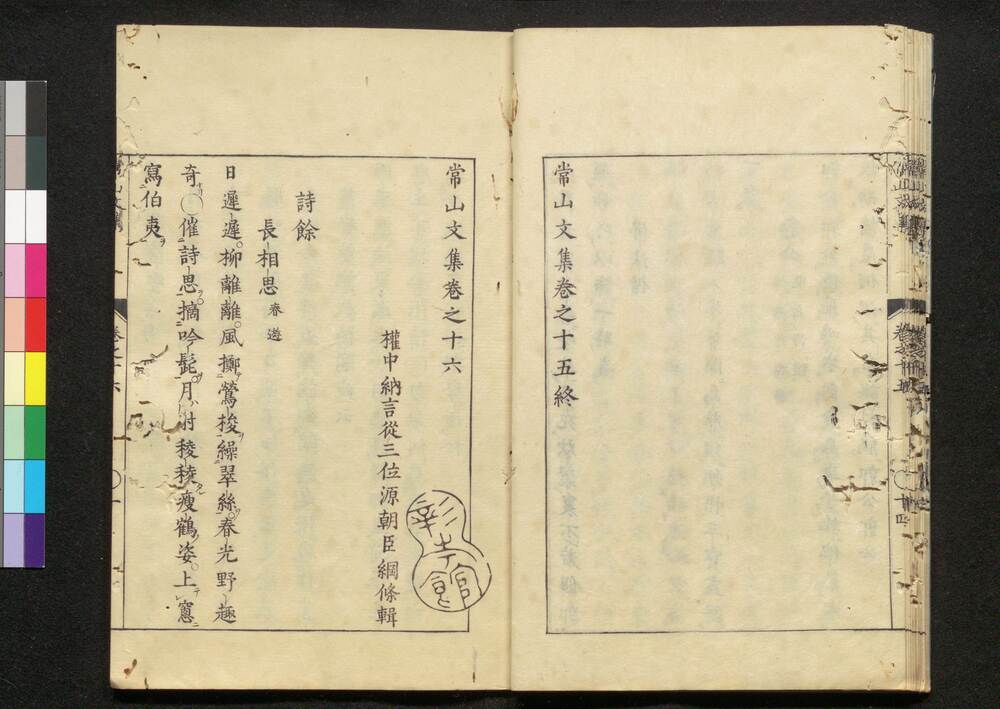 常山文集卷之十五終
常山文集卷之十六
權中納言從三位源朝臣綱條輯
詩餘
長相思 春遊
日遲遲。柳離離。風擲鶯梭繰翠絲。春光野趣
奇 〇催詩思。摘吟髭。月 稜稜瘦鶴姿。上窻
寫伯夷
彰考館